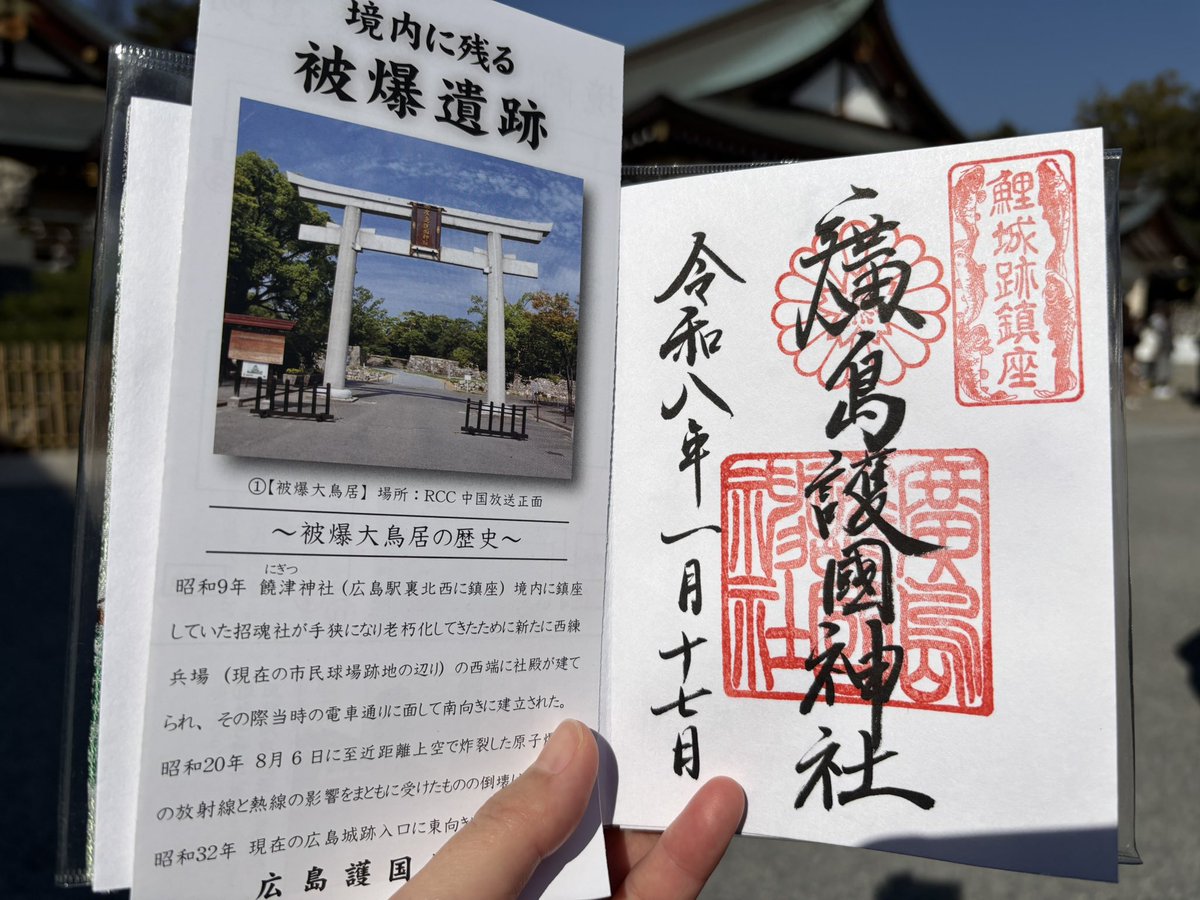 境内に残る
被爆遺跡
①【被爆大鳥居】 場所：RCC 中国放送正面
～被爆大鳥居の歴史～
にぎつ
昭和9年 饒津神社 (広島駅裏北西に鎮座) 境内に鎮座
していた招魂社が手狭になり老朽化してきたために新たに西練
兵場 (現在の市民球場跡地の辺り) の西端に社殿が建て
られ、その際当時の電車通りに面して南向きに建立された。
昭和20年 8月6日に至近距離上空で炸裂した原子爆
の放射線と熱線の影響をまともに受けたものの倒壊
昭和32年 現在の広島城跡入口に東向き
広島護国
鯉城跡鎮座
廣島護國神社
令和八年一月十七日
廣島
神社